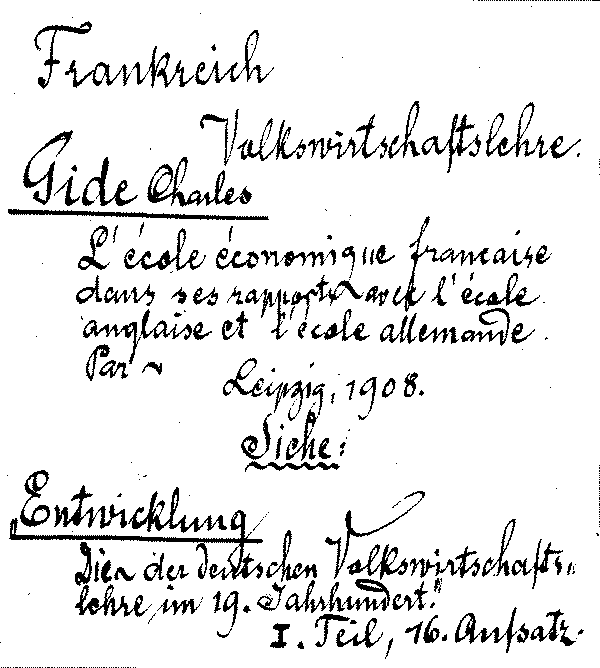 Frankreich
Volkswirtschaftslehre.
Gide Charles
L'école économique francaise
dans ses rapports avec l'école
anglaise et l'école allemande.
Par ~
Leipzig, 1908.
Siehe:
„Entwicklung
Die ~ der deutschen Volkswirtschafts„
lehre im 19. Jahrhundert."
I. Teil, 16. Aufsatz.